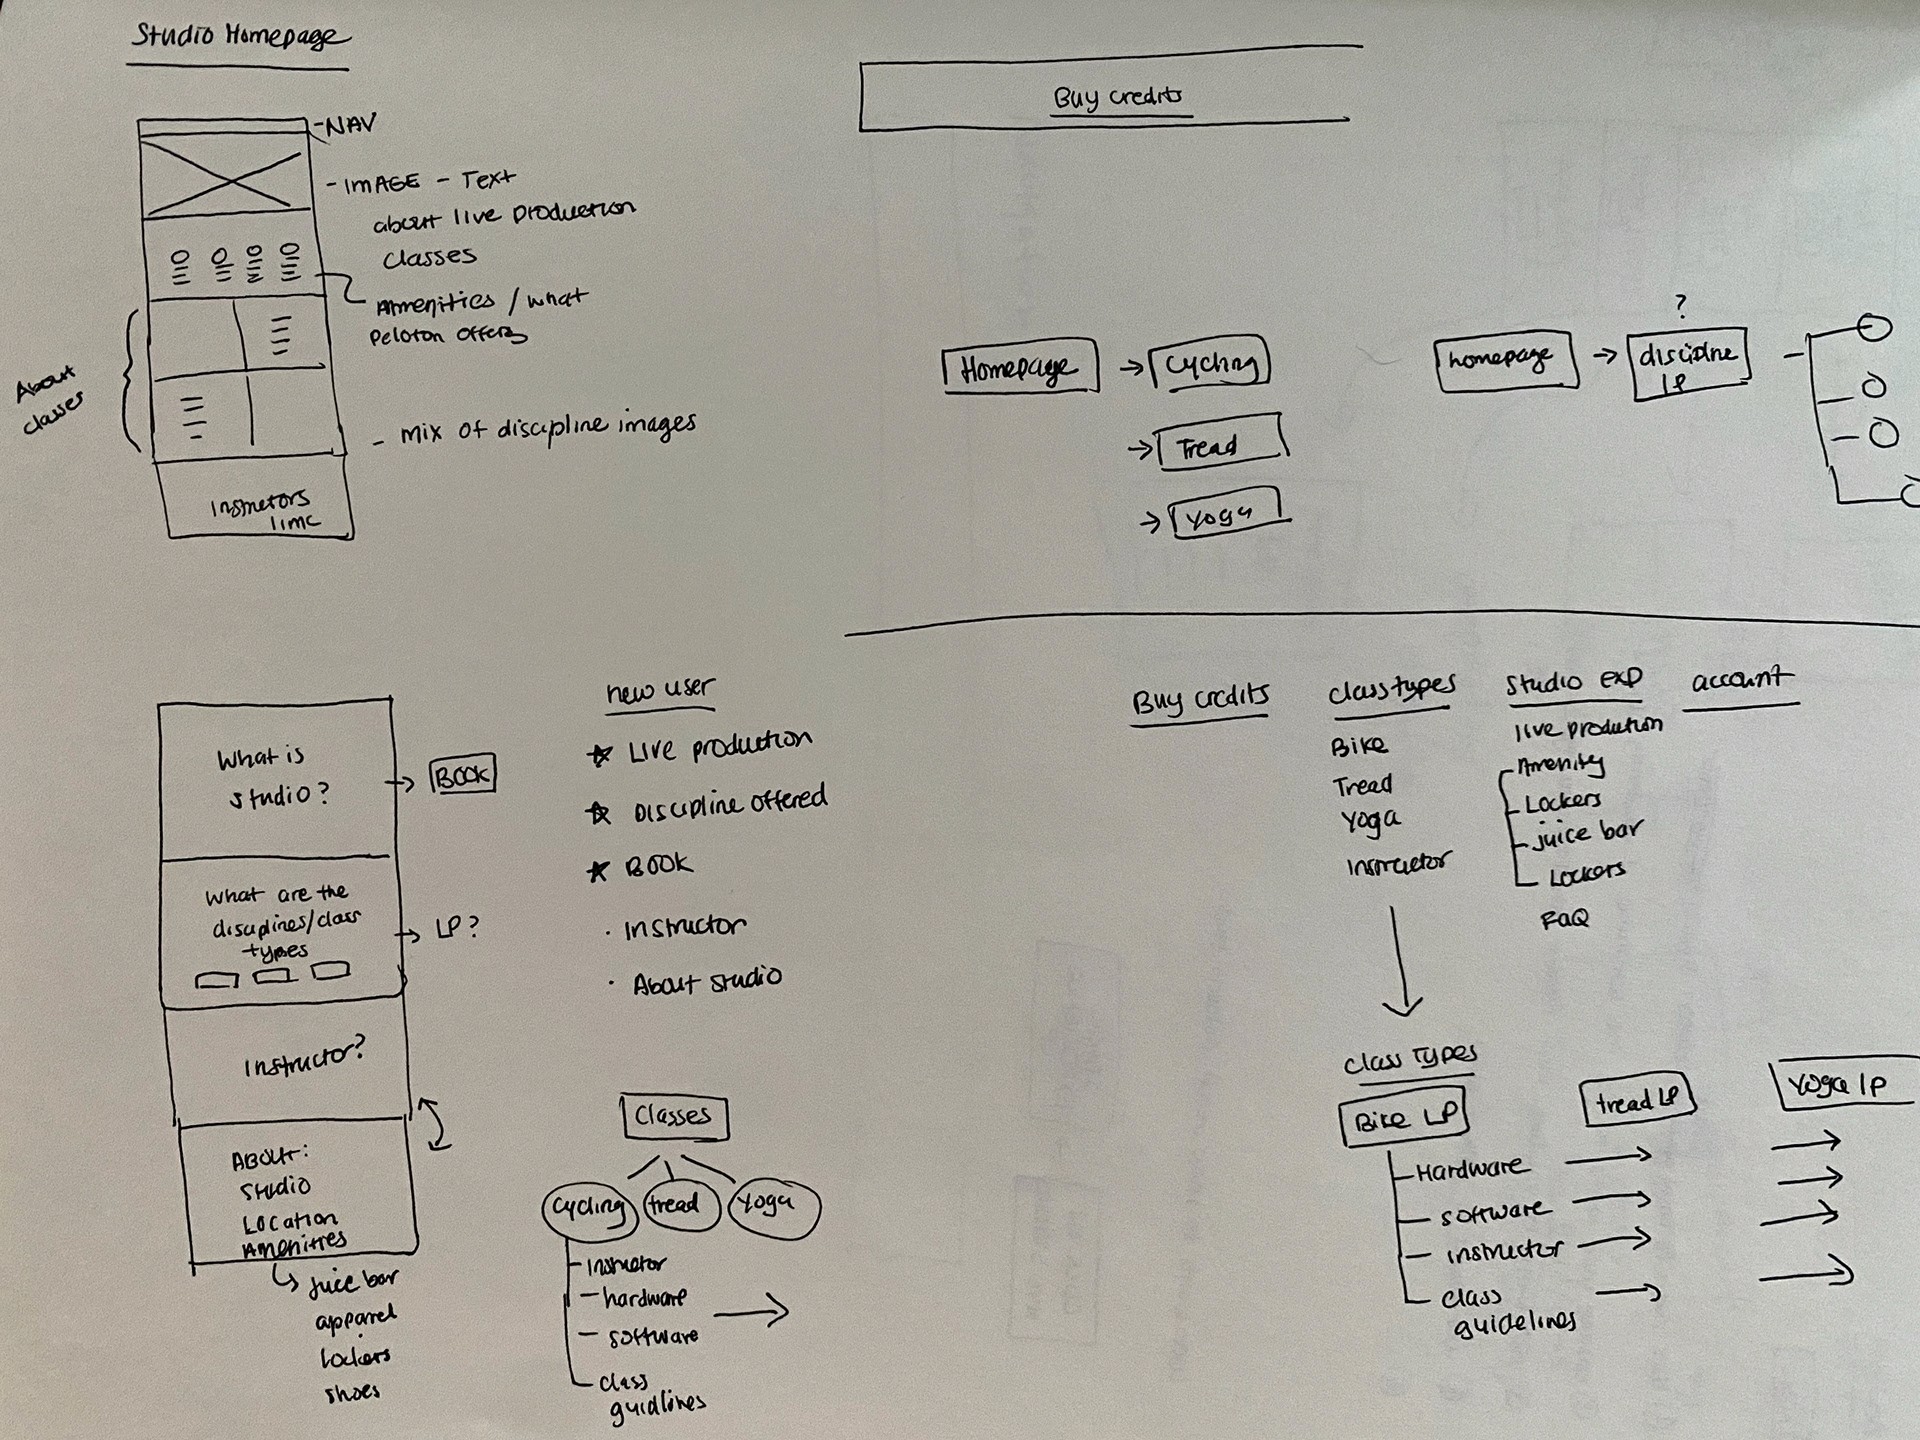 Studio Homepage
-NAV
- IMAGE - Text
about live production
classes
Amenities / what
Peloton offers
About
classes
- mix of discipline images
Instructors
Buy credits
Homepage → Cycling
→ Tread
→ Yoga
?
homepage → discipline
LP
What is
studio?
→ BOOK
What are the
disciplines/class
types
→ LP?
Instructor?
ABOUT:
Studio
Location
Amenities
↳ juice bar
apparel
lockers
shoes
new user
★ Live production
★ Discipline offered
★ BOOK
· Instructor
· About studio
Classes
Cycling tread Yoga
- Instructor
- hardware →
- software
- class
guidlines
Buy credits
class types
Bike
Tread
Yoga
Instructor
Studio exp
live prodution
- Amenity
- Lockers
- juice bar
- Lockers
FAQ
account
class Types
Bike LP
- Hardware →
- software →
- instructor →
- class →
guidelines
tread LP
Yoga LP